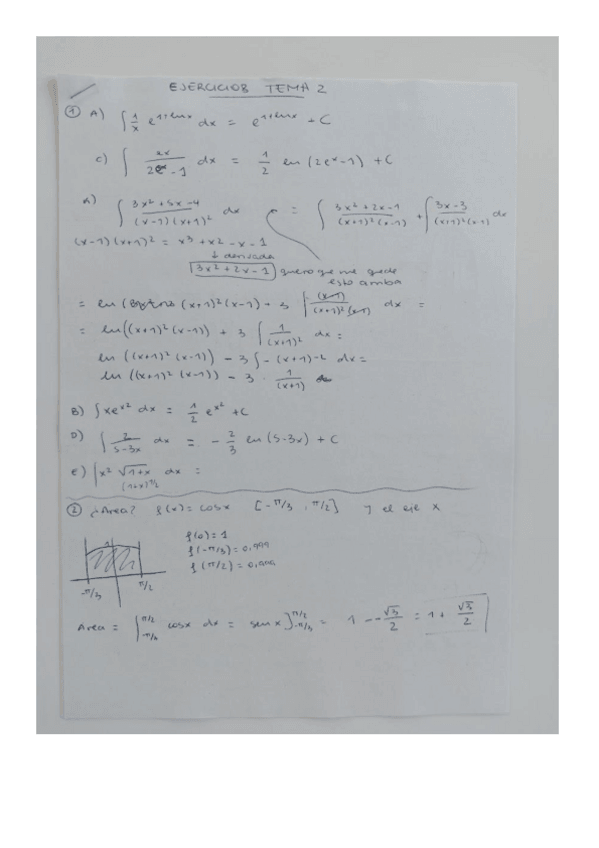 EJERCICIOS TEMA 2
① A) ∫ 1/x e^(1+lnx) dx = e^(1+lnx) + C
c) ∫ /(2e^x - 1) dx = 1/2 ln (2e^x - 1) + C
∫ (3x² + 5x - 4)/((x-1)(x+1)²) dx = ∫ (3x² + 2x - 1)/((x+1)²(x-1)) + ∫ (3x - 3)/((x+1)²(x-1)) dx
(x-1)(x+1)² = x³ + x² - x - 1
↓ derivada
3x² + 2x - 1 quiero que me quede
esto arriba
= ln ( (x+1)²(x-1) + 3 ∫ (x-1)/((x+1)²(x-1)) dx =
= ln((x+1)²(x-1)) + 3 ∫ 1/(x+1)² dx =
ln ((x+1)²(x-1)) - 3 ∫ - (x+1)-2 dx =
ln ((x+1)²(x-1)) - 3 · 1/(x+1)
B) ∫ xe^(x²) dx = 1/2 e^(x²) + C
D) ∫ 2/(5-3x) dx = - 2/3 ln (5-3x) + C
E) ∫ x² √(1+x) dx =
(1+x)^(1/2)
② ¿Area? f(x) = cosx [-π/3, π/2] y el eje x
f(0) = 1
f(-π/3) = 0,999
f(π/2) = 0,999
-π/3 π/2
Area = ∫_(-π/3)^(π/2) cosx dx = senx]_(-π/3)^(π/2) = 1 - - √3/2 = 1 + √3/2